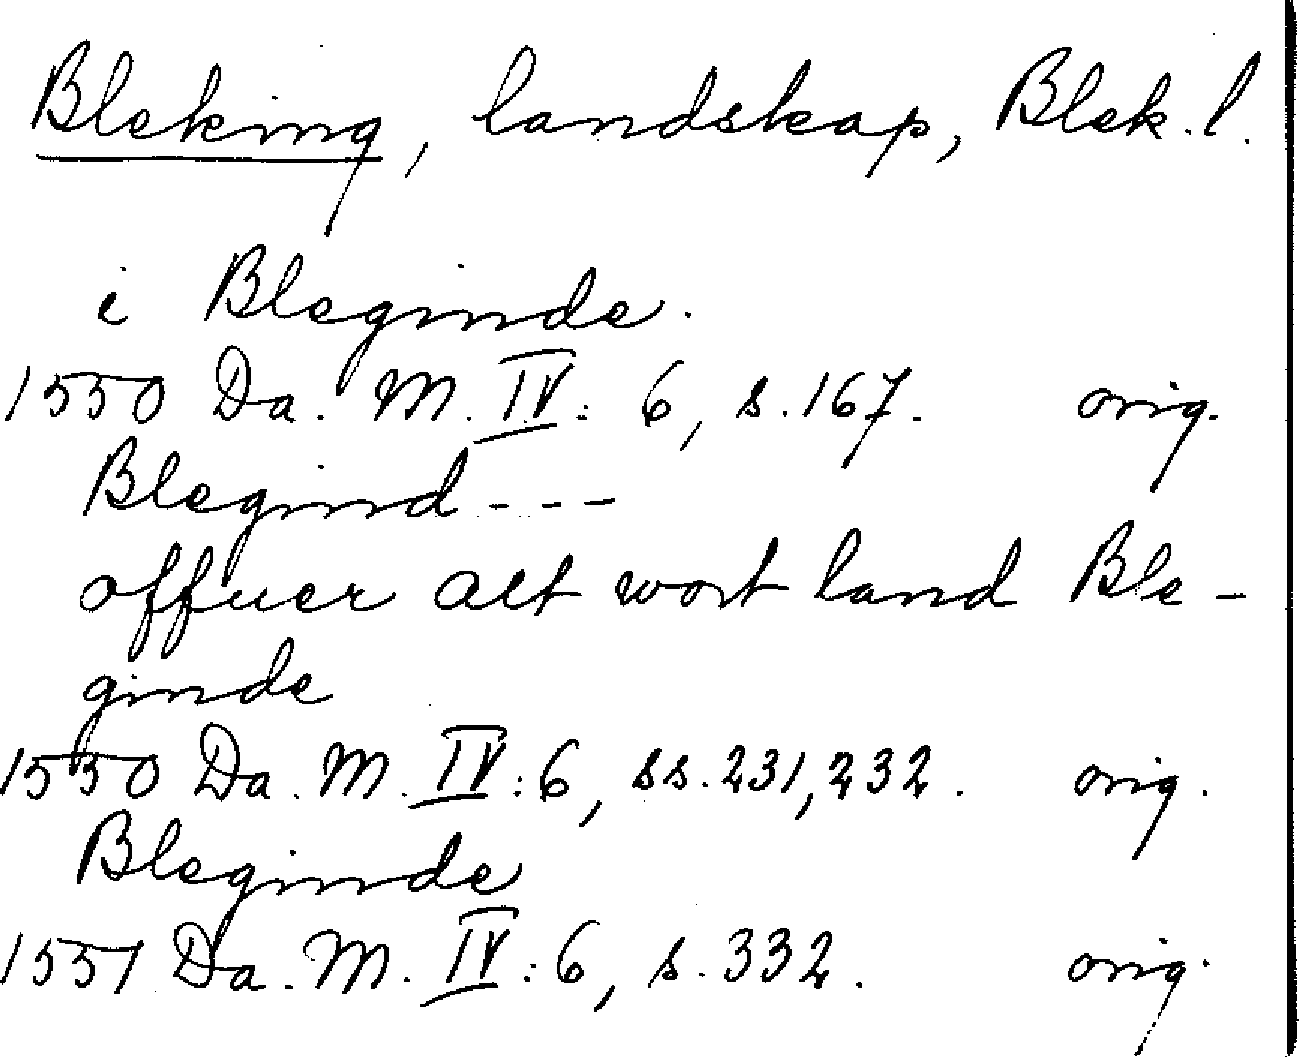 Bleking, landskap, Blek. l.
i Bleginde.
1550 Da. M. IV: 6, s. 167. orig.
Blegind - - -
offuer alt wort land Ble-
ginde
1550 Da. M. IV: 6, ss. 231, 232. orig.
Bleginde
1551 Da. M. IV: 6, s. 332. orig.